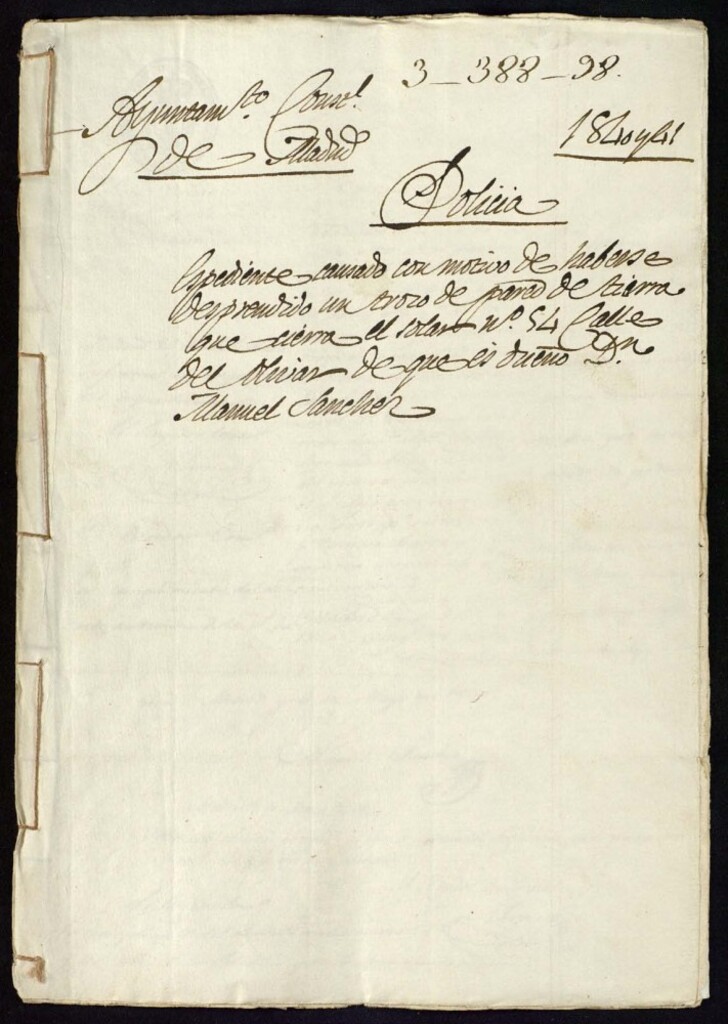 3-388-98.
Ayuntamto. Constl.
de Madrid
1840 y 41
Policia
Espediente causado con motivo de haberse
desprendido un trozo de pared de tierra
que cierra el solar nº. 54 Calle
del Olivar de que es dueño Dn.
Manuel Sanchez